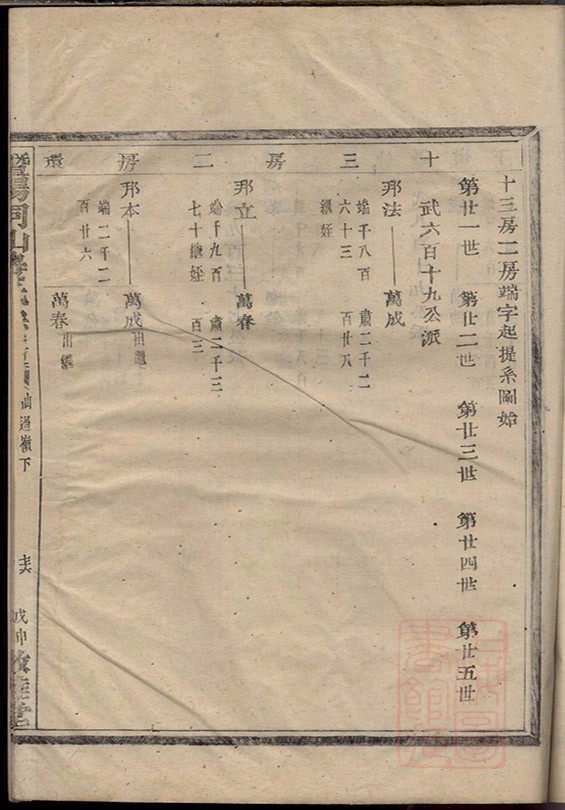 十三房二房端字起提系圖始
第廿一世　第廿二世　第廿三世　第廿四世　第廿五世
十三房二房環
武六百十九公派
邦法　萬成
端千八百六十三　肅二千二百廿八
繼姪
邦立　萬春
端千九百七十　肅二千三百三
繼姪
邦本　萬成出繼
端二千二百廿六
萬春出繼
暨陽同山
過嶺下
戊申